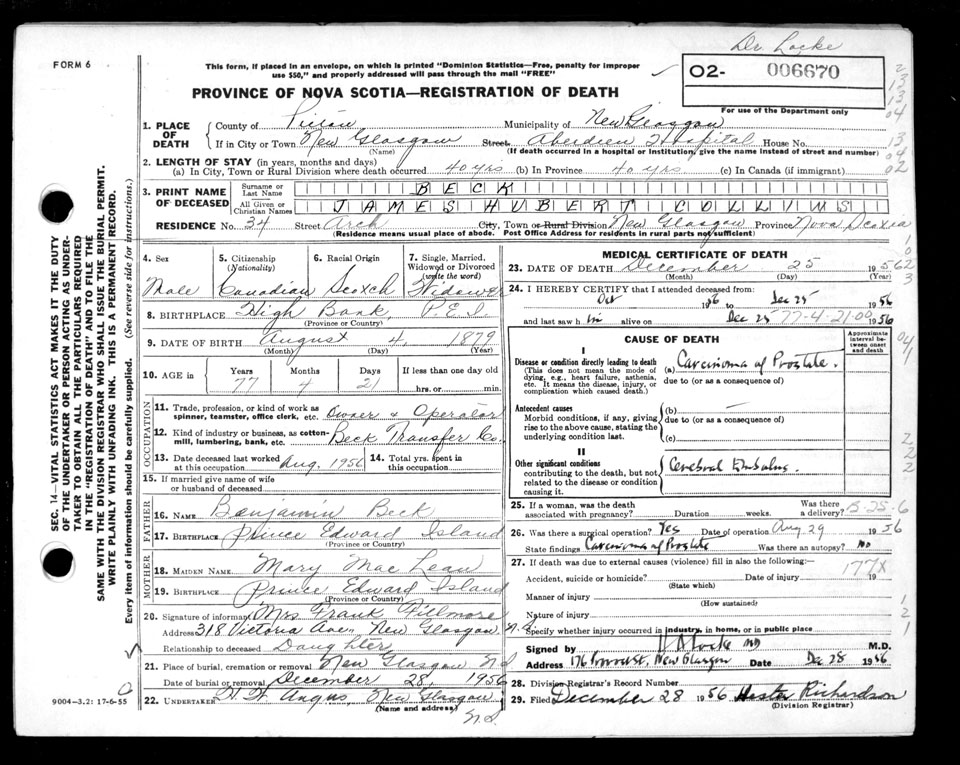 Dr. Locke
FORM 6
This form, if placed in an envelope, on which is printed "Dominion Statistics—Free, penalty for improper
use $50," and properly addressed will pass through the mail "FREE"
O2- 006670
For use of the Department only
PROVINCE OF NOVA SCOTIA—REGISTRATION OF DEATH
1. PLACE OF DEATH
County of Pictou Municipality of New Glasgow
If in City or Town New Glasgow Street Aberdeen Hospital House No.
(Name) (If death occurred in a hospital or institution, give the name instead of street and number)
2. LENGTH OF STAY (in years, months and days)
(a) In City, Town or Rural Division where death occurred 40 yrs (b) In Province 40 yrs. (c) In Canada (if immigrant)
3. PRINT NAME OF DECEASED
Surname or Last Name BECK
All Given or Christian Names JAMES HUBERT COLLINS
RESIDENCE No. 34 Street Arch City, Town or Rural Division New Glasgow Province Nova Scotia
(Residence means usual place of abode. Post Office Address for residents in rural parts not sufficient)
4. Sex Male
5. Citizenship (Nationality) Canadian
6. Racial Origin Scotch
7. Single, Married, Widowed or Divorced (write the word) Widower
8. BIRTHPLACE High Bank, P.E.I.
(Province or Country)
9. DATE OF BIRTH August 4, 1879
(Month) (Day) (Year)
10. AGE in Years Months Days If less than one day old
77 4 21 hrs. or min.
OCCUPATION
11. Trade, profession, or kind of work as spinner, teamster, office clerk, etc. Owner & Operator
12. Kind of industry or business, as cotton-mill, lumbering, bank, etc. Beck Transfer Co.
13. Date deceased last worked at this occupation Aug. 1956
14. Total yrs. spent in this occupation
15. If married give name of wife or husband of deceased
FATHER
16. NAME Benjamin Beck
17. BIRTHPLACE Prince Edward Island
(Province or Country)
MOTHER
18. MAIDEN NAME Mary Mac Lean
19. BIRTHPLACE Prince Edward Island
(Province or Country)
20. Signature of informant Mrs Frank Fillmore
Address 318 Victoria Ave, New Glasgow N.S.
Relationship to deceased Daughter
21. Place of burial, cremation or removal New Glasgow N.S
Date of burial or removal December 28, 1956
22. UNDERTAKER Angus New Glasgow N.S.
(Name and address)
9004—3.2: 17-6-55
MEDICAL CERTIFICATE OF DEATH
23. DATE OF DEATH December 25 1956
(Month) (Day) (Year)
24. I HEREBY CERTIFY that I attended deceased from:
Oct 1956 to Dec 25 1956
and last saw him alive on Dec 25 1956
77-4-21-00
CAUSE OF DEATH
Approximate interval between onset and death
I
Disease or condition directly leading to death
(This does not mean the mode of dying, e.g., heart failure, asthenia, etc. It means the disease, injury, or complication which caused death.)
(a) Carcinoma of Prostate.
due to (or as a consequence of)
Antecedent causes
Morbid conditions, if any, giving rise to the above cause, stating the underlying condition last.
(b) —
due to (or as a consequence of)
(c)
II
Other significant conditions
contributing to the death, but not related to the disease or condition causing it.
Cerebral Embolus.
25. If a woman, was the death associated with pregnancy? Duration weeks. Was there a delivery?
26. Was there a surgical operation? Yes Date of operation Aug 29 1956
State findings Carcinoma of Prostate Was there an autopsy? No
27. If death was due to external causes (violence) fill in also the following:—
177X
Accident, suicide or homicide? Date of injury 19
(State which)
Manner of injury
(How sustained)
Nature of injury
Specify whether injury occurred in industry, in home, or in public place
Signed by Locke MD M.D.
Address 176 New Glasgow Date Dec 28 1956
28. Division Registrar's Record Number
29. Filed December 28 1956 Richardson
(Division Registrar)
SEC. 14—VITAL STATISTICS ACT MAKES IT THE DUTY
OF THE UNDERTAKER OR PERSON ACTING AS UNDER-
TAKER TO OBTAIN ALL THE PARTICULARS REQUIRED
IN THE "REGISTRATION OF DEATH" AND TO FILE THE
SAME WITH THE DIVISION REGISTRAR WHO SHALL ISSUE THE BURIAL PERMIT.
WRITE PLAINLY WITH UNFADING INK. THIS IS A PERMANENT RECORD.
Every item of information should be carefully supplied. (See reverse side for instructions.)